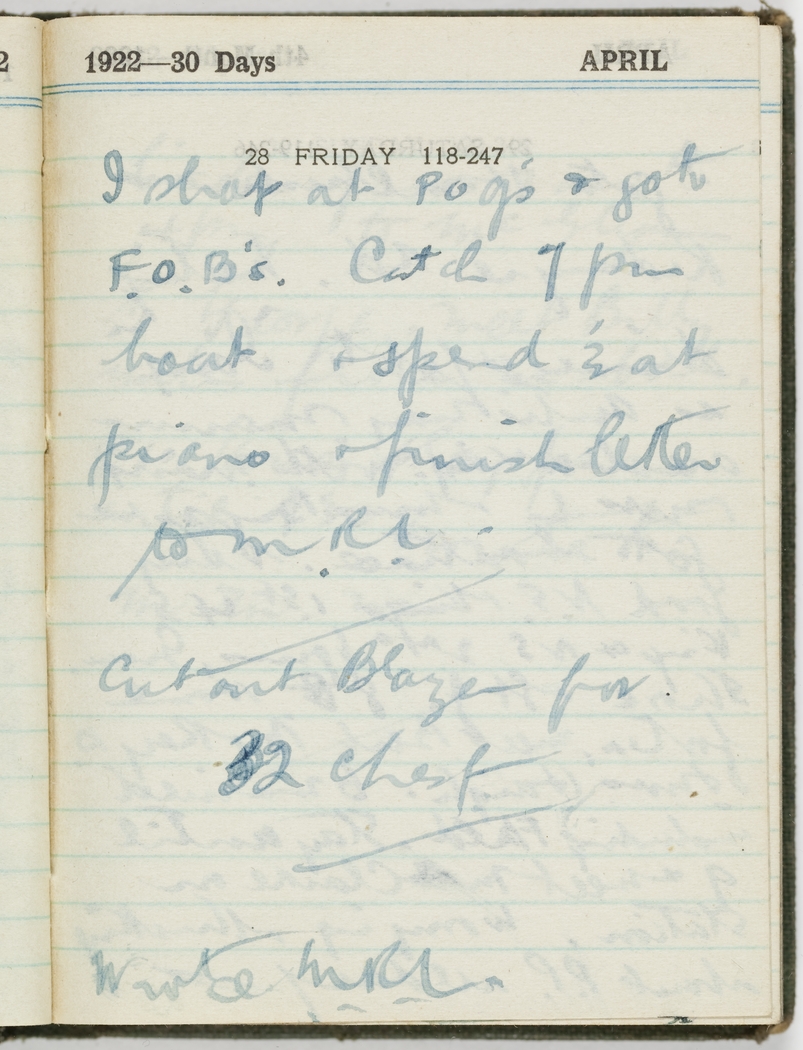 1922—30 Days APRIL
28 FRIDAY 118-247
I shop at Pog's & go to
F.O.B's. Catch 7 pm
boat & spend ½ at
piano & finish letter
to M.R.L. -
Cut out Blazer for
32 chest
Wrote M.R.L.